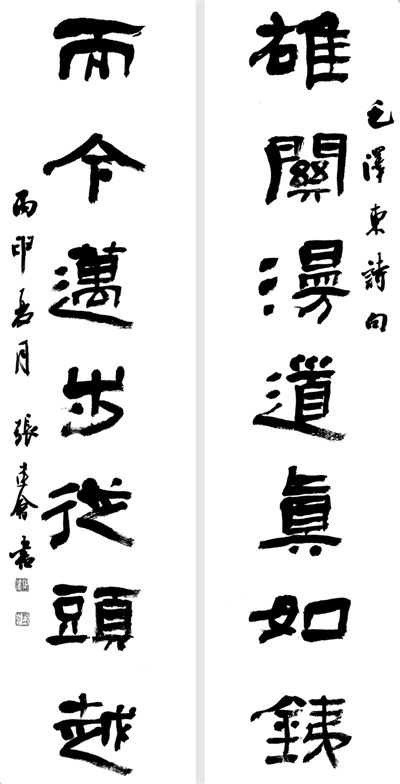 毛澤東詩句
雄關漫道眞如銕
而今邁步從頭越
丙申月 張建會書